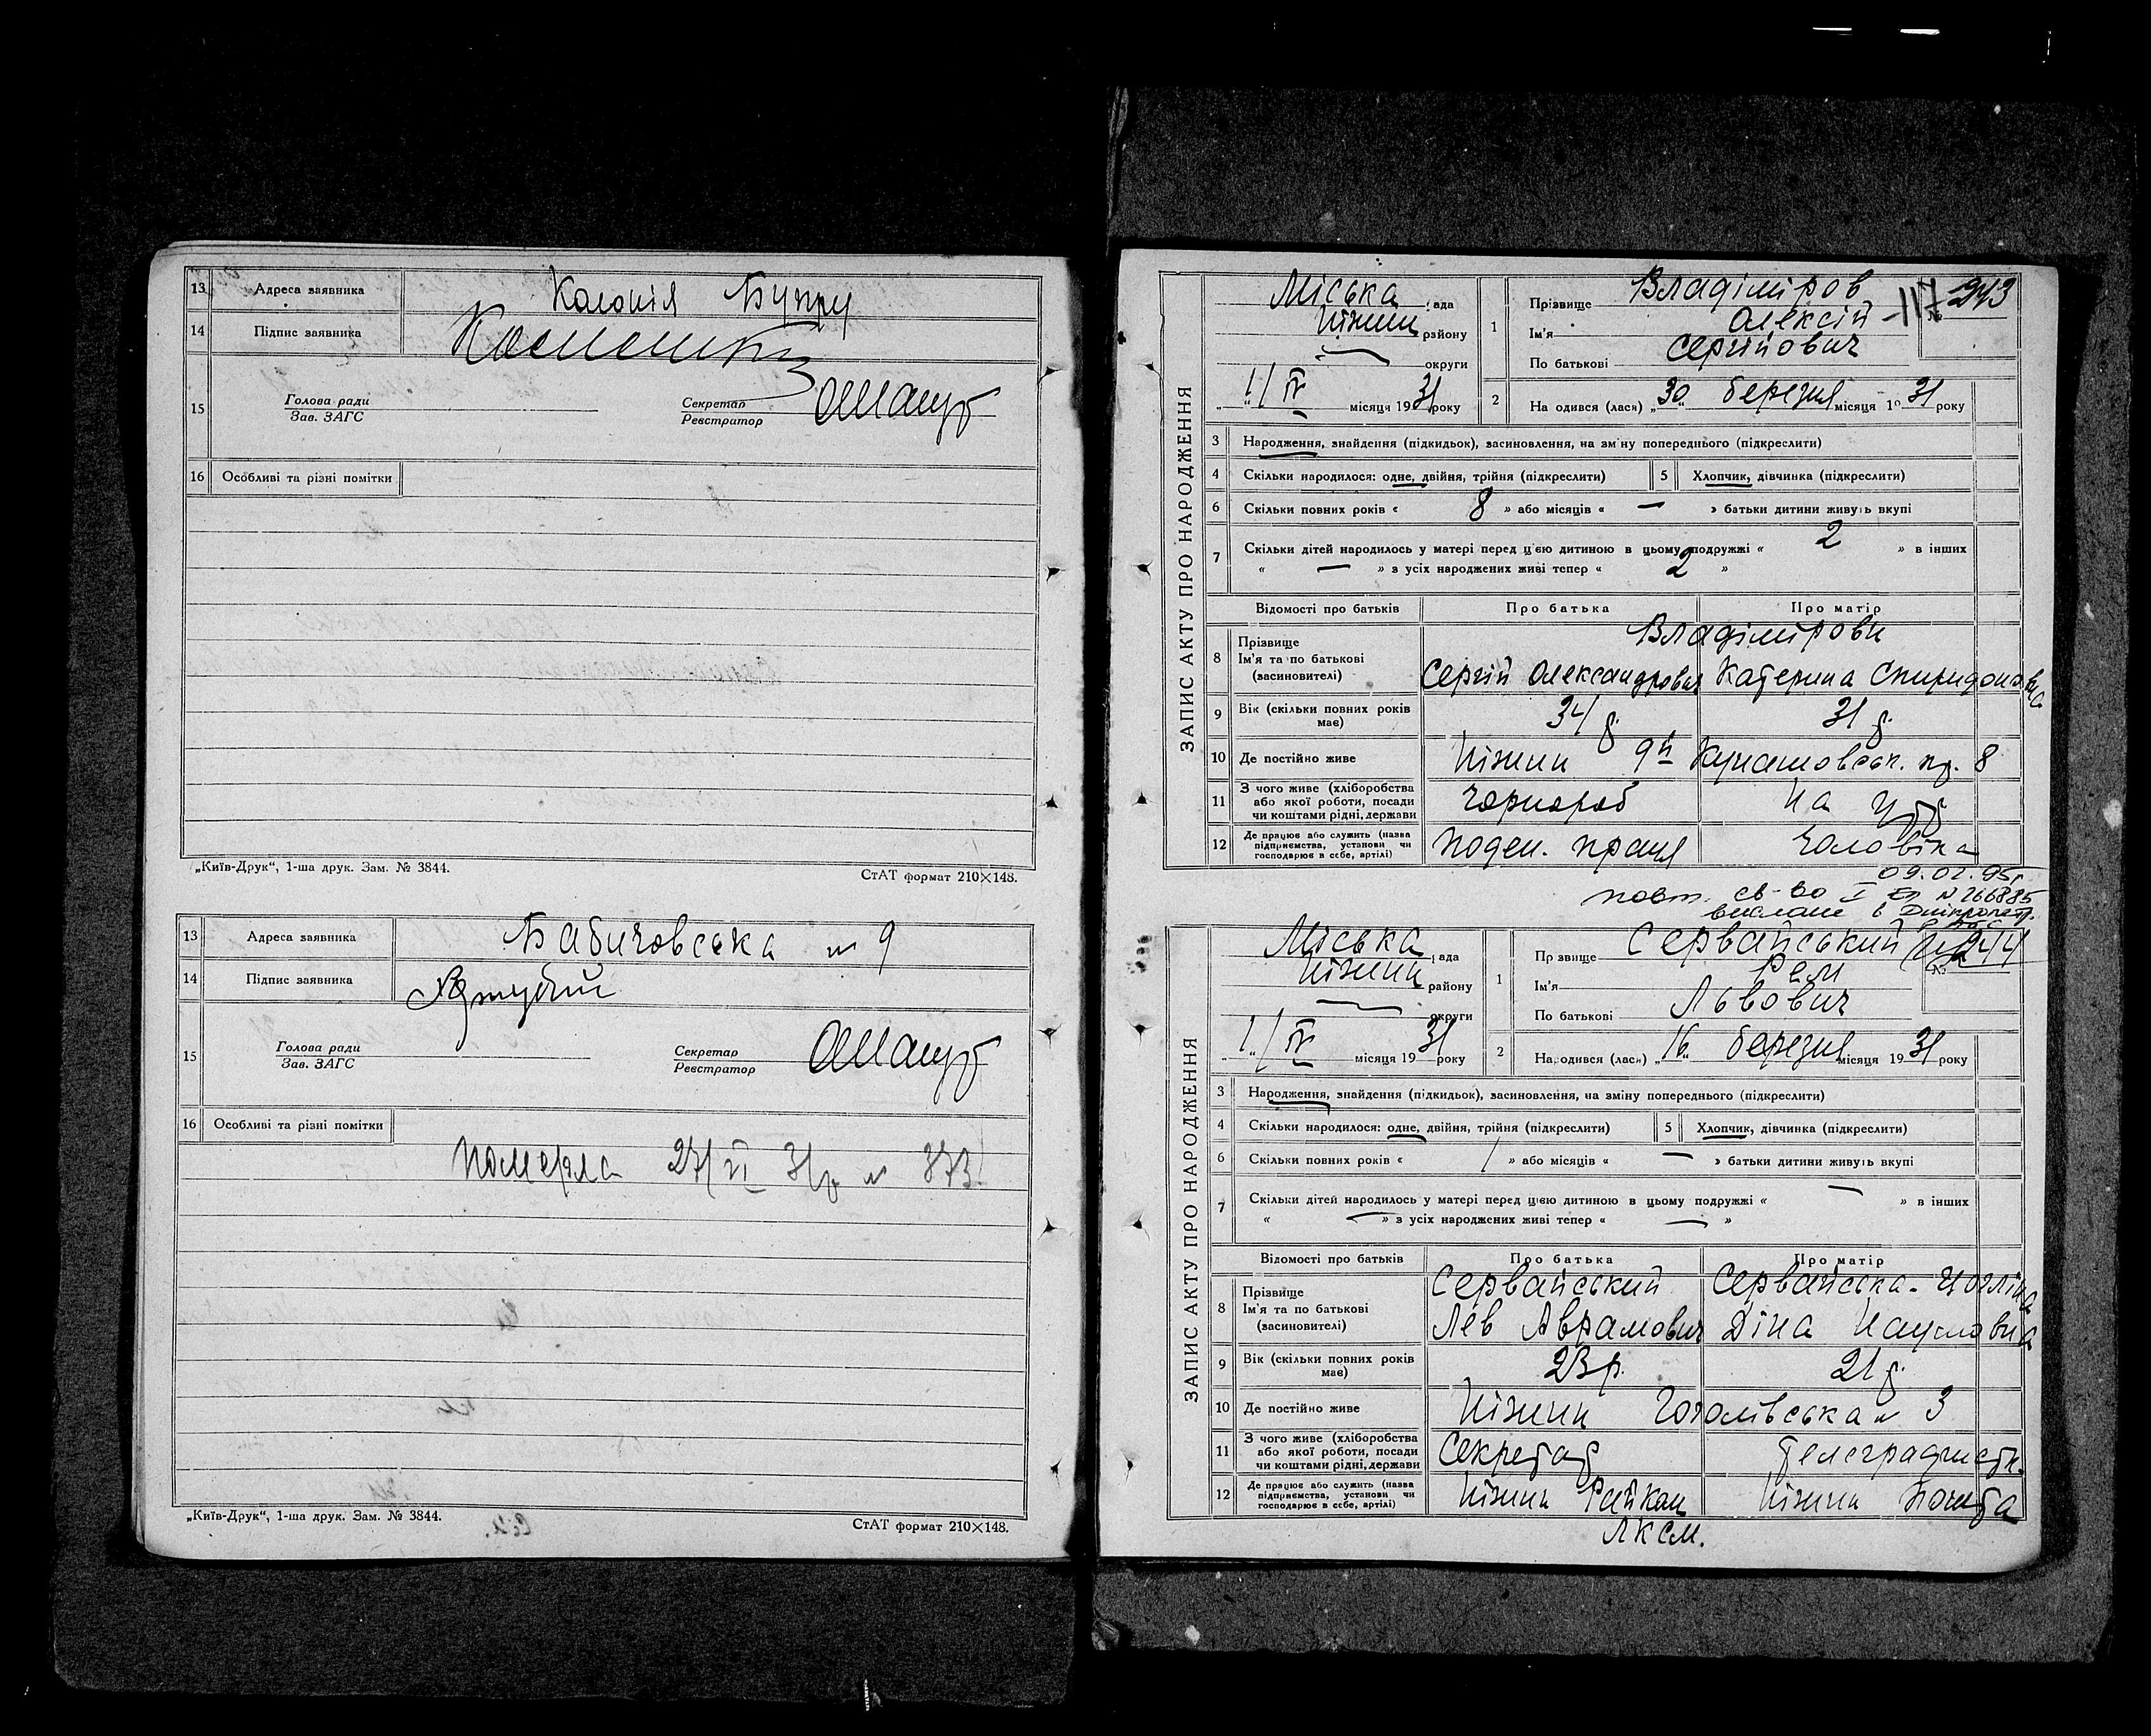 13 Адреса заявника Колонія Бупру
14 Підпис заявника
15 Голова ради
Зав. ЗАГС
Секретар
Реєстратор
16 Особливі та різні помітки
„Київ-Друк“, 1-ша друк. Зам. № 3844.
СтАТ формат 210×148.
13 Адреса заявника Бабичовська № 9
14 Підпис заявника
15 Голова ради
Зав. ЗАГС
Секретар
Реєстратор
16 Особливі та різні помітки
Померла 27/VI 31 р № 373
„Київ-Друк“, 1-ша друк. Зам. № 3844.
СтАТ формат 210×148.
ЗАПИС АКТУ ПРО НАРОДЖЕННЯ
Міська рада
Ніжин району
округи
„1“ IV місяця 1931 року
1 Прізвище Владіміров
Ім'я Олексій
По батькові Сергійович
117 № 243
2 На одився (лася) „30“ березня місяця 1931 року
3 Народження, знайдення (підкидьок), засиновлення, на зміну попереднього (підкреслити)
4 Скільки народилося: одне, двійня, трійня (підкреслити)
5 Хлопчик, дівчинка (підкреслити)
6 Скільки повних років « 8 » або місяців « — » батьки дитини живуть вкупі
7 Скільки дітей народилось у матері перед цією дитиною в цьому подружжі « 2 » в інших
« — » з усіх народжених живі тепер « 2 »
Відомості про батьків Про батька Про матір
8 Прізвище Владімірови
Ім'я та по батькові
(засиновителі) Сергій Олександрович Катерина Спиридоновна
9 Вік (скільки повних років має) 34 р. 31 р.
10 Де постійно живе Ніжин 9й Кунашовськ. пр. 8
11 З чого живе (хліборобства
або якої роботи, посади
чи коштами рідні, держави Чорнороб На утр
12 Де працює або служить (назва
підприємства, установи чи
господарює в себе, артілі) поден. праця чоловіка
09.02.95р.
повт. св-во I № 266885
видане в Дніпропетр.
ЗАПИС АКТУ ПРО НАРОДЖЕННЯ
Міська рада
Ніжин району
округи
„1“ IV місяця 1931 року
1 Пр звище Сервайський
Ім'я Рем
По батькові Львович
№ 244
2 Народився (лася) „16“ березня місяця 1931 року
3 Народження, знайдення (підкидьок), засиновлення, на зміну попереднього (підкреслити)
4 Скільки народилося: одне, двійня, трійня (підкреслити)
5 Хлопчик, дівчинка (підкреслити)
6 Скільки повних років « 1 » або місяців « — » батьки дитини живуть вкупі
7 Скільки дітей народилось у матері перед цією дитиною в цьому подружжі « — » в інших
« — » з усіх народжених живі тепер « — »
Відомості про батьків Про батька Про матір
8 Прізвище Сервайський Сервайська-
Ім'я та по батькові
(засиновителі) Лев Аврамович Діна Наумовна
9 Вік (скільки повних років має) 23 р. 21 р.
10 Де постійно живе Ніжин Гоголівська № 3
11 З чого живе (хліборобства
або якої роботи, посади
чи коштами рідні, держави Секретар телеграфистк.
12 Де працює або служить (назва
підприємства, установи чи
господарює в себе, артілі) Ніжин Райком Ніжин Пошта
ЛКСМ.